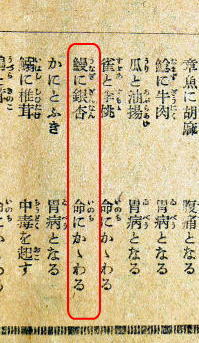 章魚に胡麻 腹痛となる
鯰に牛肉 胃病となる
瓜と油揚 胃病となる
雀と李桃 命にかゝわる
鰻に銀杏 命にかゝわる
かにとふき 胃病となる
鰯に椎茸 中毒を起す